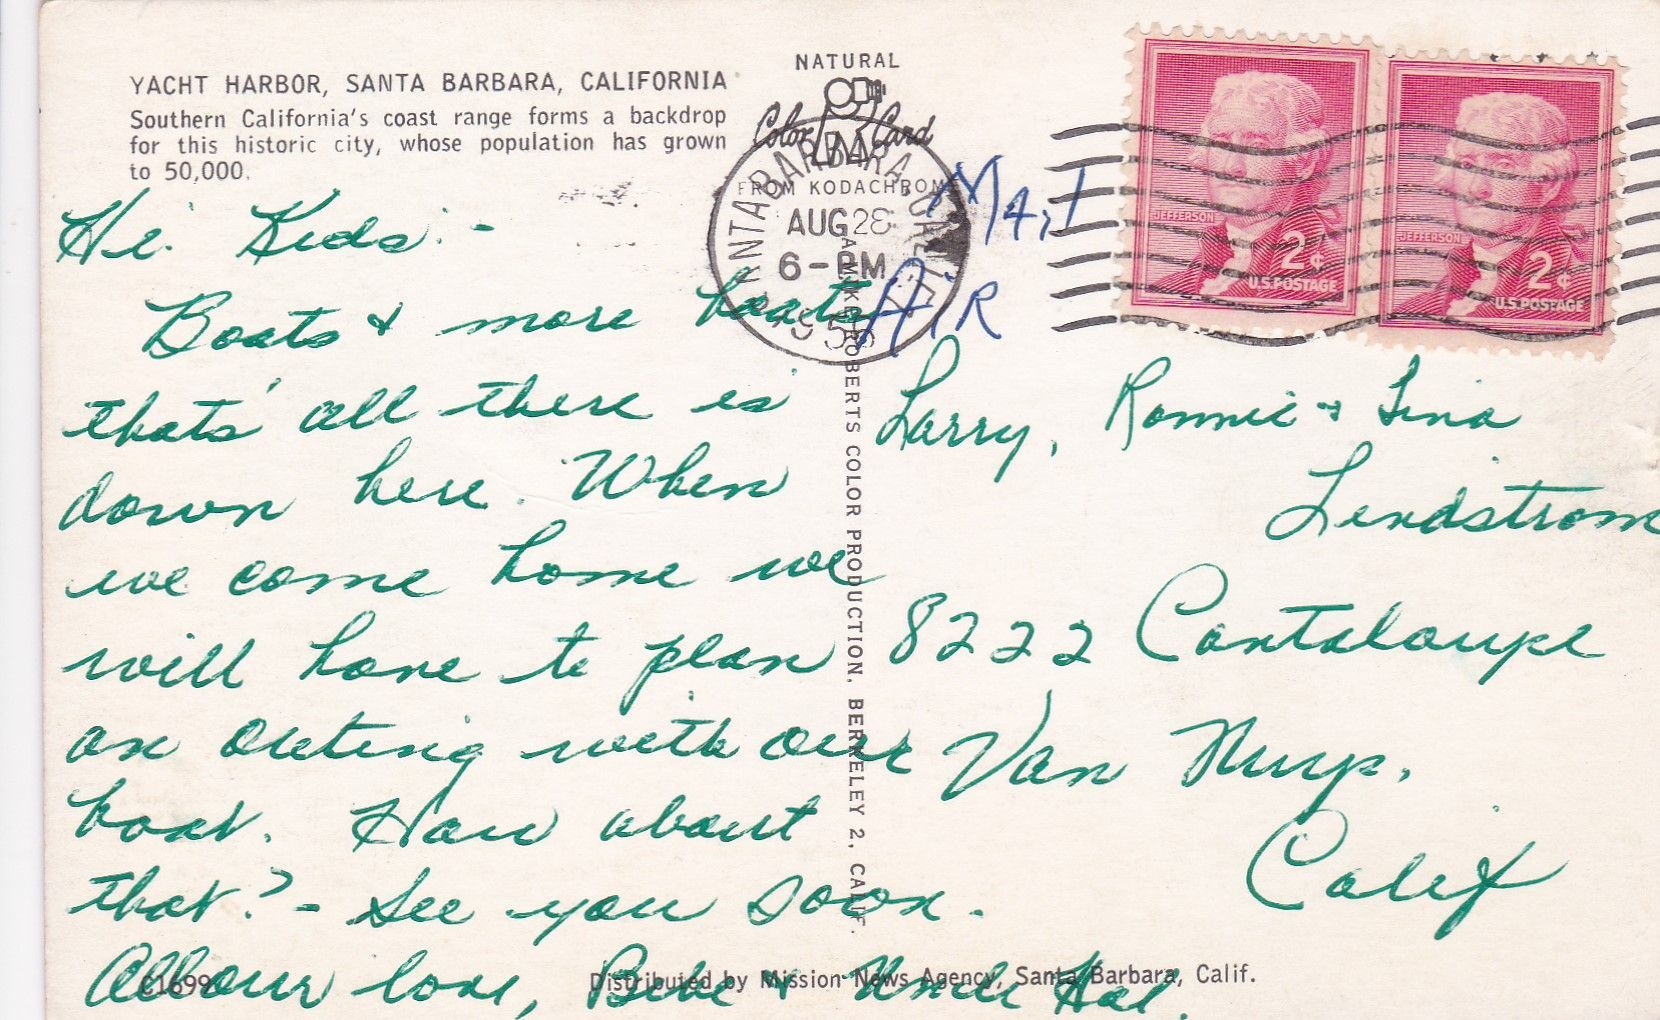 YACHT HARBOR, SANTA BARBARA, CALIFORNIA
Southern California's coast range forms a backdrop
for this historic city, whose population has grown
to 50,000.
NATURAL
Color Card
FROM KODACHROME
SANTA BARBARA CALIF.
AUG 28
6-PM
195
JEFFERSON
2¢
U.S. POSTAGE
JEFFERSON
2¢
U.S. POSTAGE
Air Mail
Hi Kids:-
Boats & more boats
thats' all there is
down here. When
we come home we
will have to plan
an outing with our
boat. How about
that? - See you soon.
All our love, Bebe & Uncle Hal.
Larry, Ronnie & Tina
Lindstrom
8222 Cantaloupe
Van Nuys,
Calif
A MIKE ROBERTS COLOR PRODUCTION, BERKELEY 2, CALIF.
C1699
Distributed by Mission News Agency, Santa Barbara, Calif.